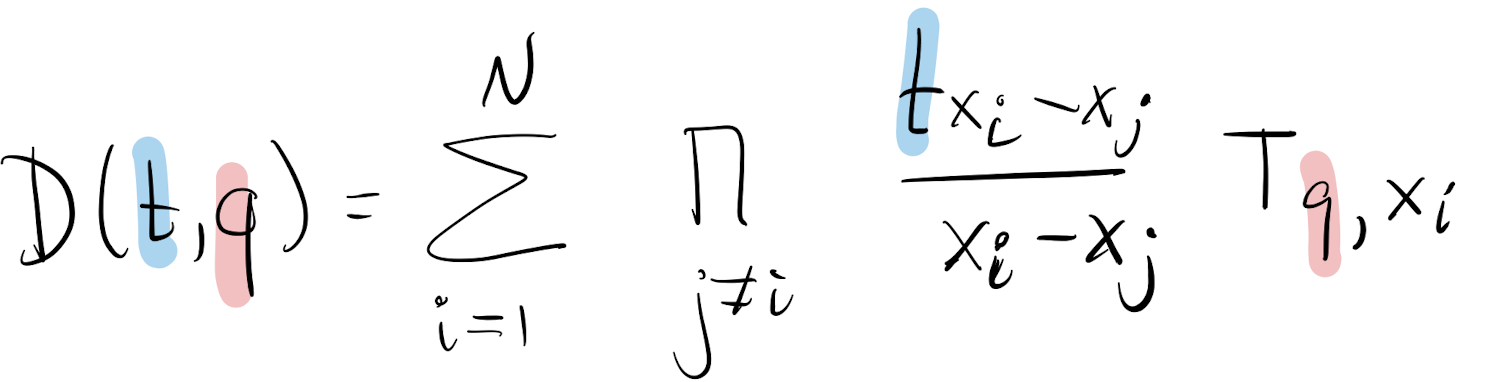 D(t,q) = \sum_{i=1}^{N} \prod_{j≠i} \frac{t x_i - x_j}{x_i - x_j} T_{q, x_i}